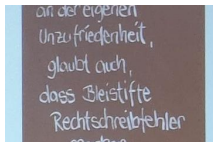 an der eigenen
Unzufriedenheit,
glaubt auch,
dass Bleistifte
Rechtschreibfehler